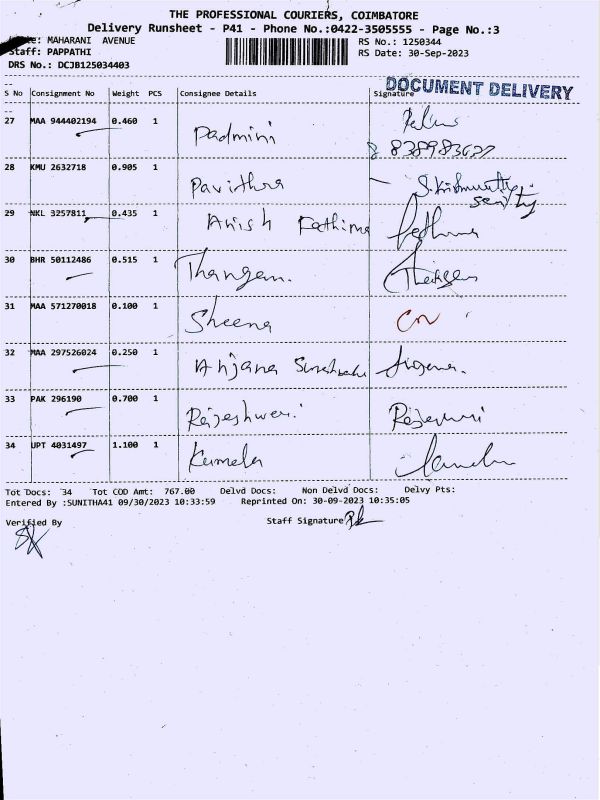 THE PROFESSIONAL COURIERS, COIMBATORE
Delivery Runsheet - P41 - Phone No.:0422-3505555 - Page No.:3
MAHARANI AVENUE
RS No.: 1250344
Staff: PAPPATHI
RS Date: 30-Sep-2023
DRS No.: DCJB125034403
DOCUMENT DELIVERY
S No Consignment No Weight PCS Consignee Details Signature
27 MAA 944402194 0.460 1 Padmini
28 KMU 2632718 0.905 1 Pavithra
29 NKL 3257811 0.435 1 Anish Fathima
30 BHR 50112486 0.515 1 Thangam.
31 MAA 571270018 0.100 1 Sheena
32 MAA 297526024 0.250 1 Anjana
33 PAK 296190 0.700 1 Rajeshwari
34 UPT 4031497 1.100 1 Kamala
Tot Docs: 34 Tot COD Amt: 767.00 Delvd Docs: Non Delvd Docs: Delvy Pts:
Entered By :SUNITHA41 09/30/2023 10:33:59 Reprinted On: 30-09-2023 10:35:05
Verified By Staff Signature